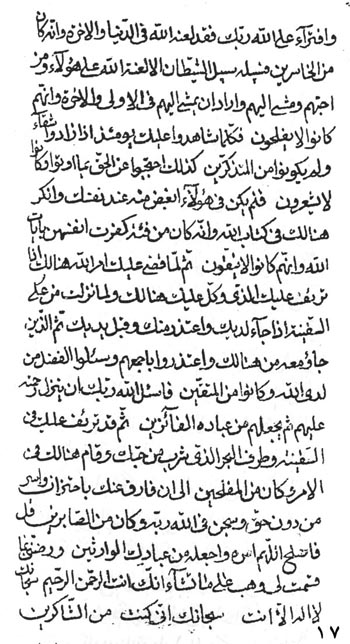 وافتراء على الله ربك فقد لعنه الله في الدنيا والاخرة وانه كان
من الخاسرين فسبيله سبيل الشيطان الا لعنة الله على هؤلاء ومن
احبهم ومشى اليهم واراد ان يمشى اليهم في الاولى والاخرة وانهم
كانوا لا يفلحون فكلما شاهدوا عليك يومئذ ازدادوا شقاء
ولم يكونوا من المتذكرين كذلك احتجبوا عن الحق بما اوتوا وكانوا
لا يشعرون فلم يكن في هؤلاء ابغض منه عند نفسك وانكر
هنالك في كتاب الله وانه كان من فئة كفرت انفسهن بايات
الله وانهم كانوا لا يتقون ثم لما قضى عليك امر الله هنالك
نريك عليك الذى وكل عليك هنالك ولما نزلت من على
السفينة اذا جاء لديك واعتذر منك وقبل يديك ثم الذين
جاؤ معه من هنالك واعتذروا باجمعهم وسئلوا الفضل من
لدى الله وكانوا من المتقين فاسئل الله ربك ان ينزل رحمته
عليهم ثم يجعلهم من عباده الفائزين ثم قد عليك في
السفينة وطرف البحر الذى شرب من حبك وقام هنالك في
الامر وكان من المفلحين الى ان فارق عنك باحتزان واسر
من دون حق وسجن في الله ربه وكان من الصابرين قل
فاصلح اللهم امره واجعله من عبادك الوارثين ورضه بما
قسمت لى وهب على ما تشاء انك انت الرحمن الرحيم سبحانك
لا اله الا انت سبحانك انى كنت من الشاكرين
١٧